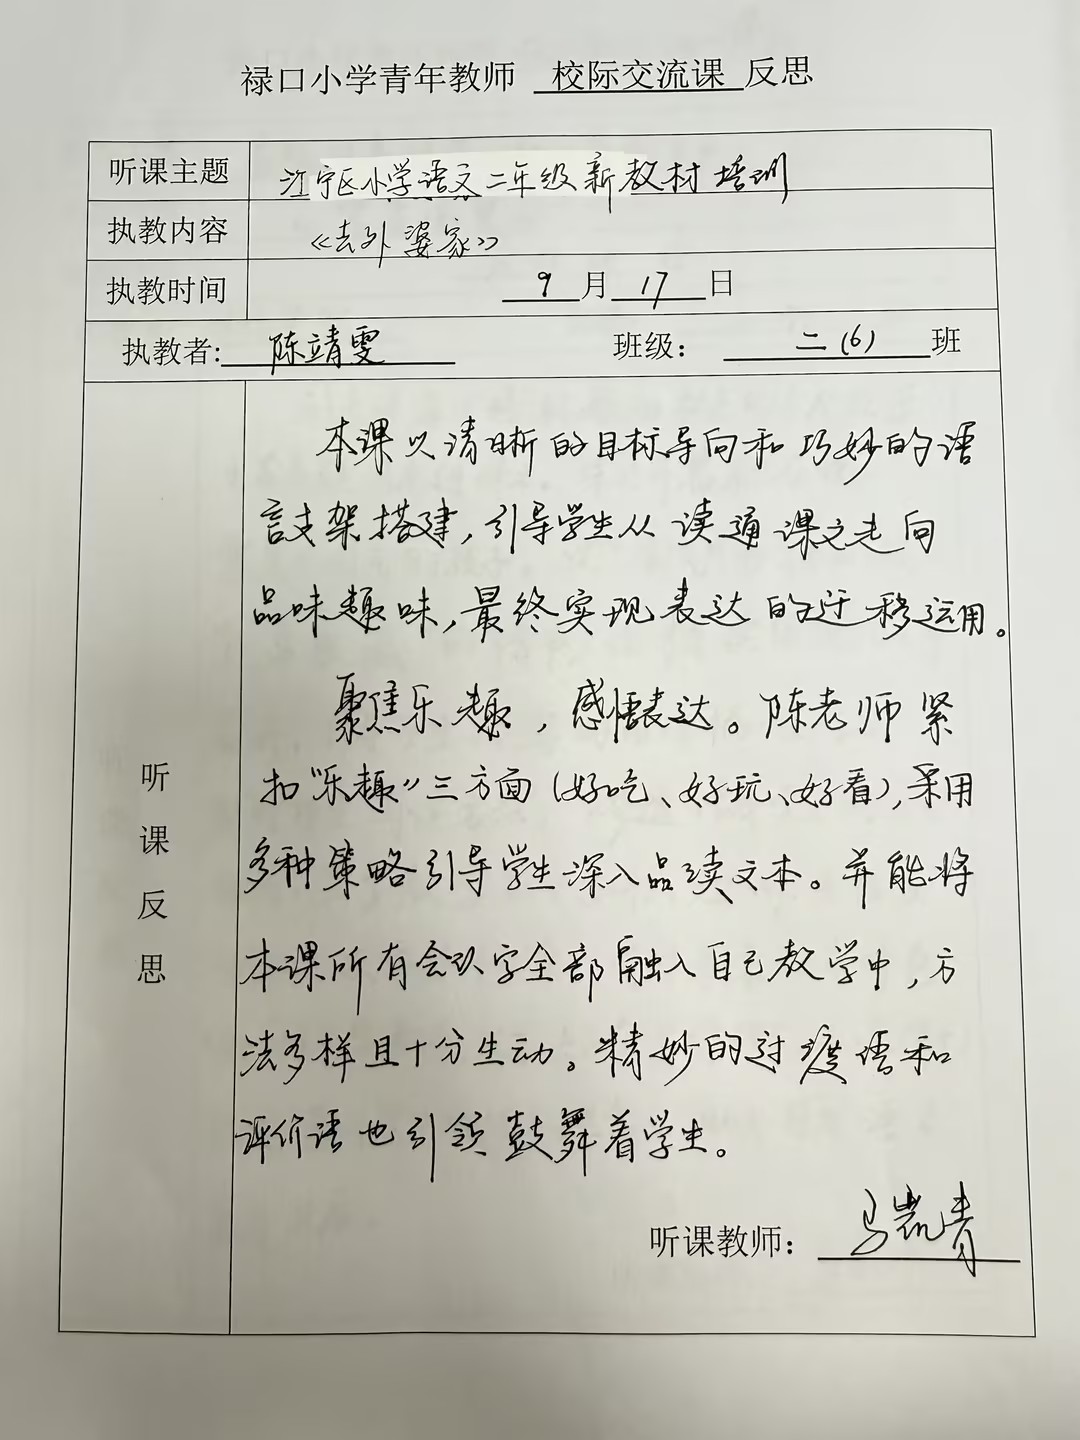 禄口小学青年教师 校际交流课 反思
听课主题 江宁区小学语文二年级新教材培训
执教内容 《去外婆家》
执教时间 9月17日
执教者: 陈靖雯 班级: 二(6)班
听课反思
本课以清晰的目标导向和巧妙的语
言支架搭建,引导学生从读通课文走向
品味趣味,最终实现表达的迁移运用。
聚焦乐趣,感悟表达。陈老师紧
扣“乐趣”三方面(好吃、好玩、好看),采用
多种策略引导学生深入品读文本。并能将
本课所有会认字全部融入自己教学中,方
法多样且十分生动。精妙的过度语和
评价语也引领鼓舞着学生。
听课教师: 马凯青